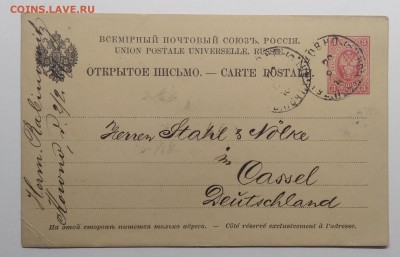 COINS.LAVE.RU
ВСЕМІРНЫЙ ПОЧТОВЫЙ СОЮЗЪ. РОССІЯ.
UNION POSTALE UNIVERSELLE. RUSSIE
ОТКРЫТОЕ ПИСЬМО. — CARTE POSTALE
КОВНО
Herren Stahl & Nölke
in
Cassel
Deutschland
Herm. Rabinowitz
Kowno, d.
На этой сторонѣ пишется только адресъ. — Côté réservé exclusivement à l'adresse.